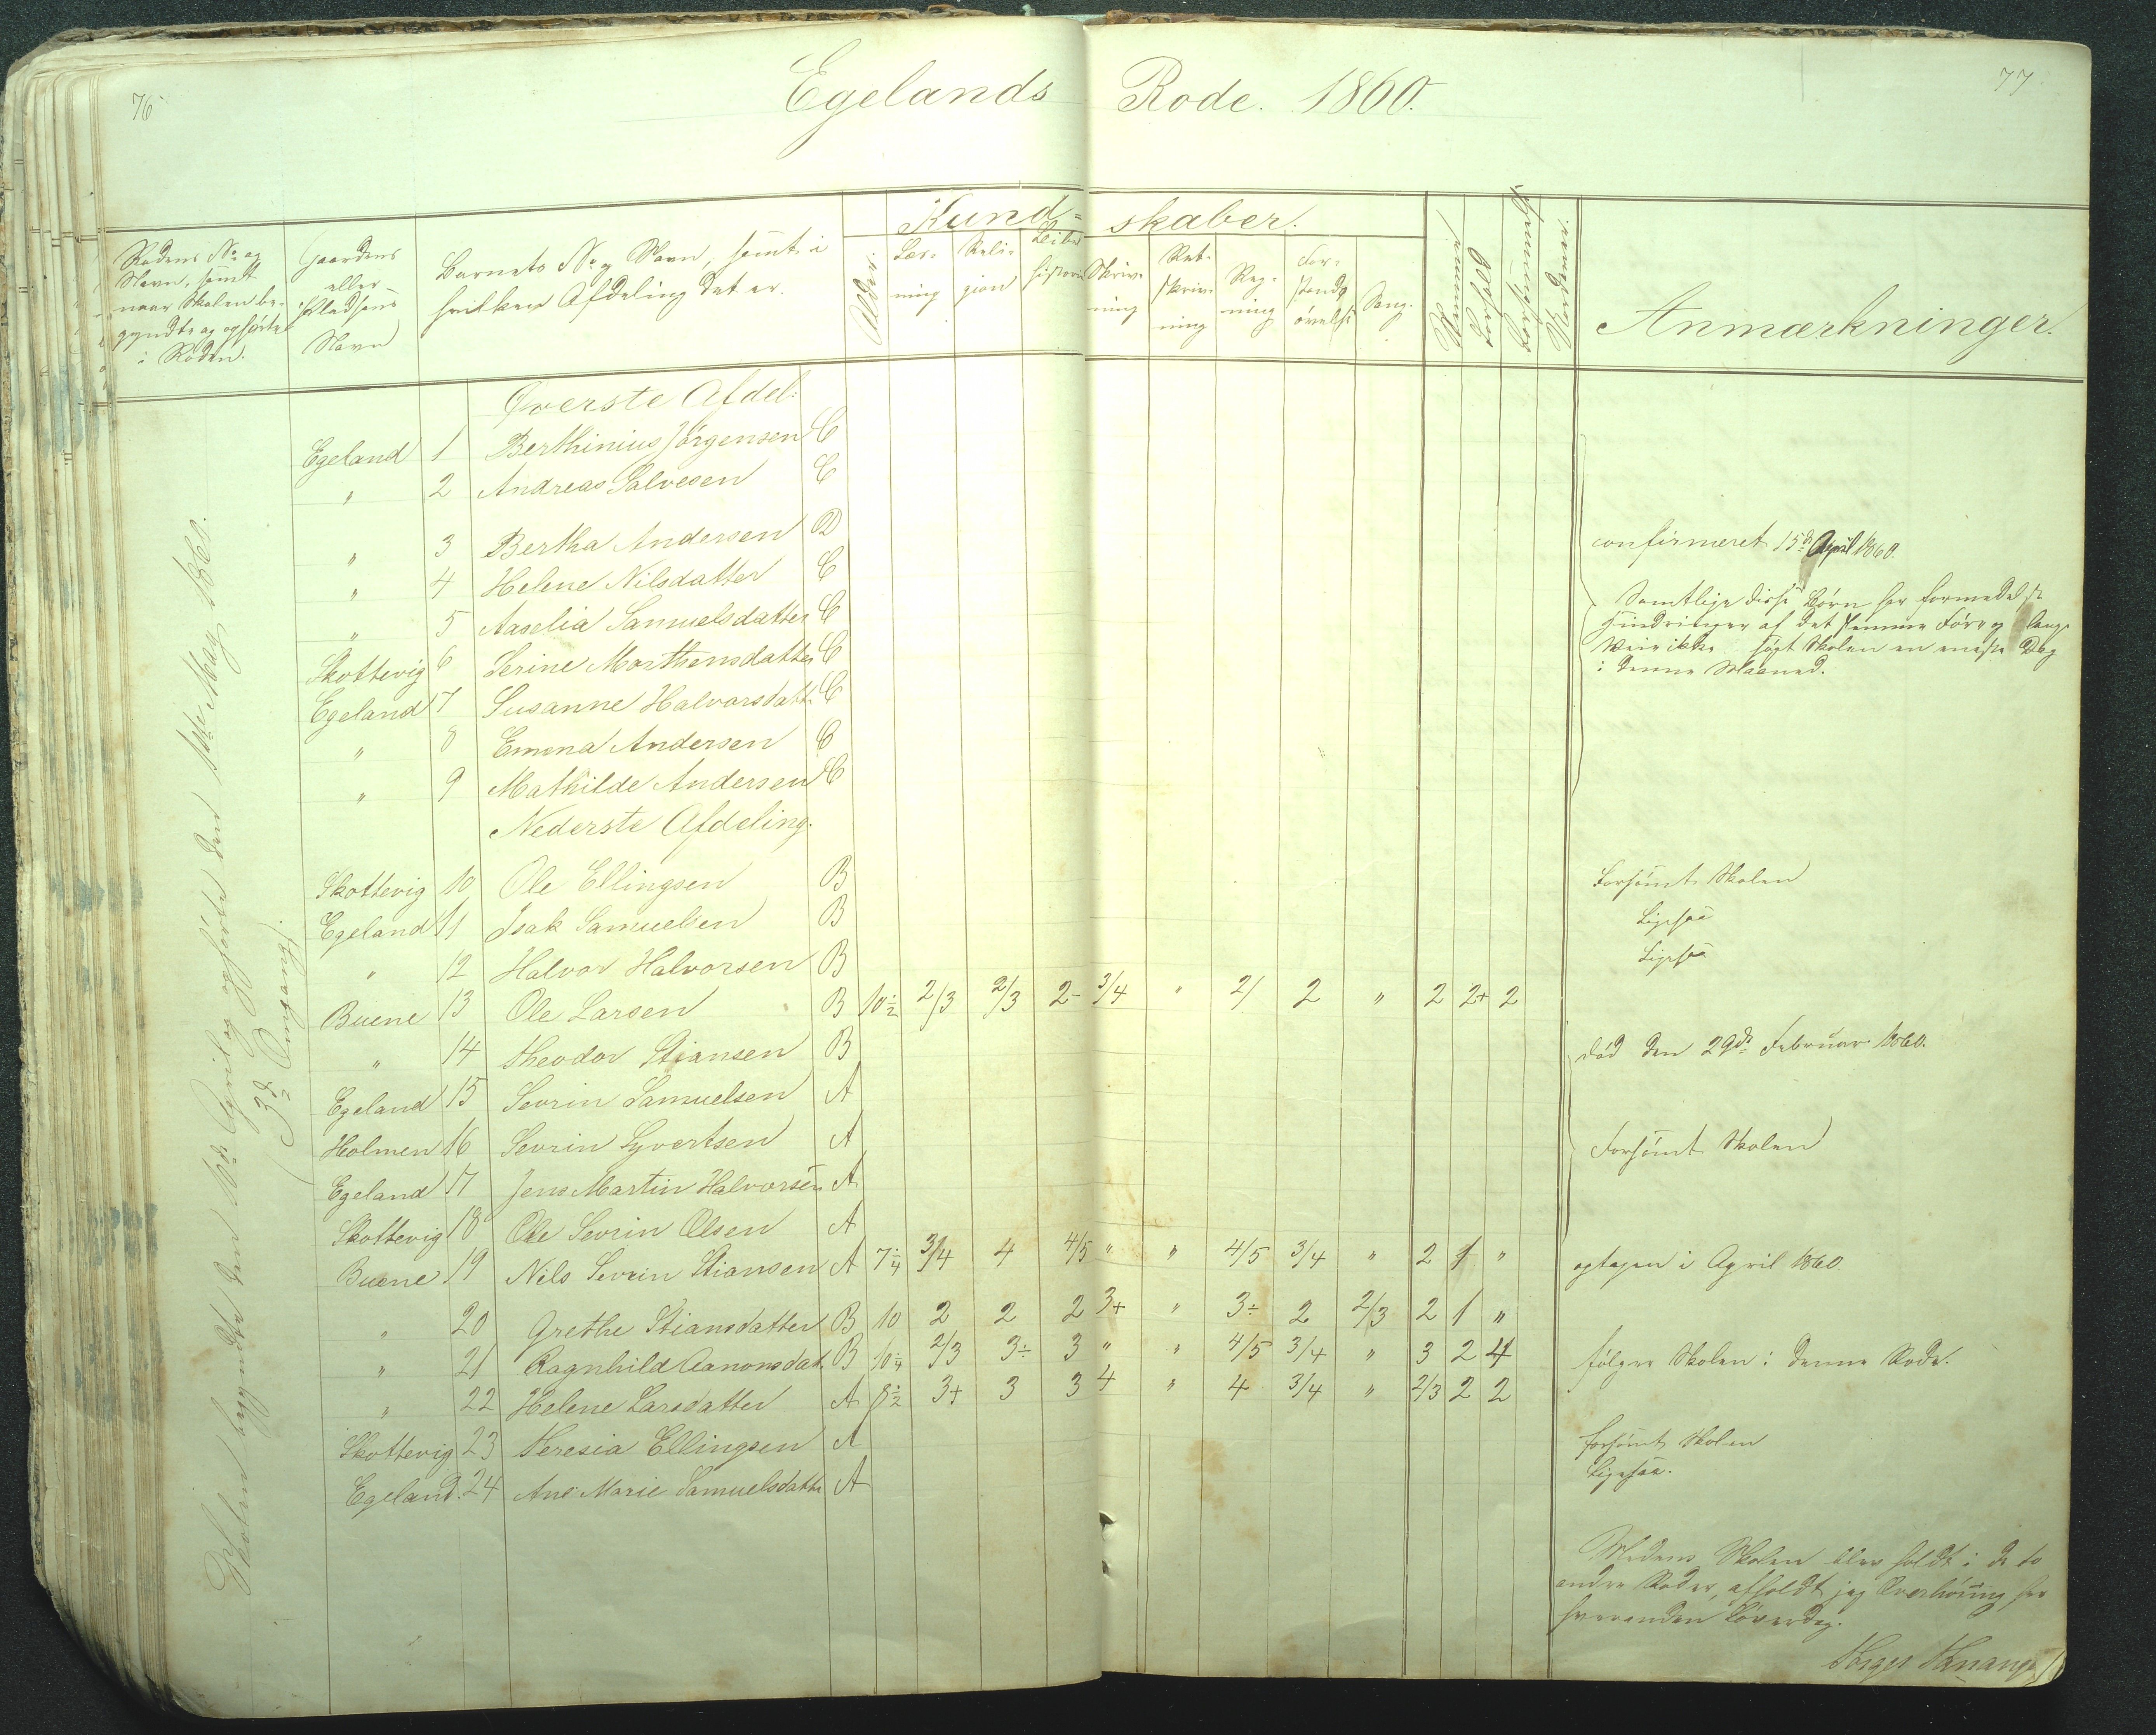 76
Egelands Rode. 1860.
77
Rodens No og Navn, samt naar Skolen begyndte og ophørte i Roden.
Gaardens eller Pladsens Navn
Barnets No og Navn, samt i hvilken Afdeling det er.
Alder.
Kundskaber.
Læsning
Religion
Bibelhistorie
Skrivning
Retskrivning
Regning
Forstandsøvelse
Sang.
Nemme
Forhold
Forsømmelse
Anmærkninger.
Skolen begyndte den 16de April og ophørte den 1ste May 1860.
(3de Omgang).
Øverste Afdel:
Egeland 1 Berthinius Jørgensen C
" 2 Andreas Salvesen C
" 3 Bertha Andersen D confirmeret 15de April 1860.
" 4 Helene Nilsdatter C
" 5 Aaselia Samuelsdatter C
Skottevig 6 Serine Marthensdatter C
Egeland 7 Susanne Halvorsdatt. C
" 8 Emma Andersen C
" 9 Mathilde Andersen C
Samtlige disse Børn har formedelst
Hindringer af det slemme Føre og lange
Vei ikke søgt Skolen en eneste Dag
i denne Maaned.
Nederste Afdeling.
Skottevig 10 Ole Ellingsen B Forsømt Skolen
Egeland 11 Isak Samuelsen B Ligesaa
" 12 Halvor Halvorsen B Ligesaa
Buene 13 Ole Larsen B 10½ 2/3 2/3 2- 3/4 " 2/ 2 " 2 2+ 2
" 14 Theodor Stiansen B død den 29de Februar 1860.
Egeland 15 Sevrin Samuelsen A
Holmen 16 Sevrin Syvertsen A Forsømt Skolen
Egeland 17 Jens Martin Halvorsen A
Skottevig 18 Ole Sevrin Olsen A
Buene 19 Nils Sevrin Stiansen A 7¼ 3/4 4 4/5 " " 4/5 3/4 " 2 1 " optagen i April 1860.
" 20 Grethe Stiansdatter B 10 2 2 2 3+ " 3÷ 2 2/3 2 1 "
" 21 Ragnhild Aanonsdat. B 10¼ 2/3 3÷ 3 " " 4/5 3/4 " 3 2 4 følger Skolen i denne Rode.
" 22 Helene Larsdatter A 8½ 3+ 3 3 4 " 4 3/4 " 2/3 2 2
Skottevig 23 Teresia Ellingsen A forsømt Skolen
Egeland. 24 Ane Marie Samuelsdattr A Ligesaa.
Medens Skolen blev holdt i de to
andre Roder, afholdt jeg Overhøring her
hveranden Løverdag.